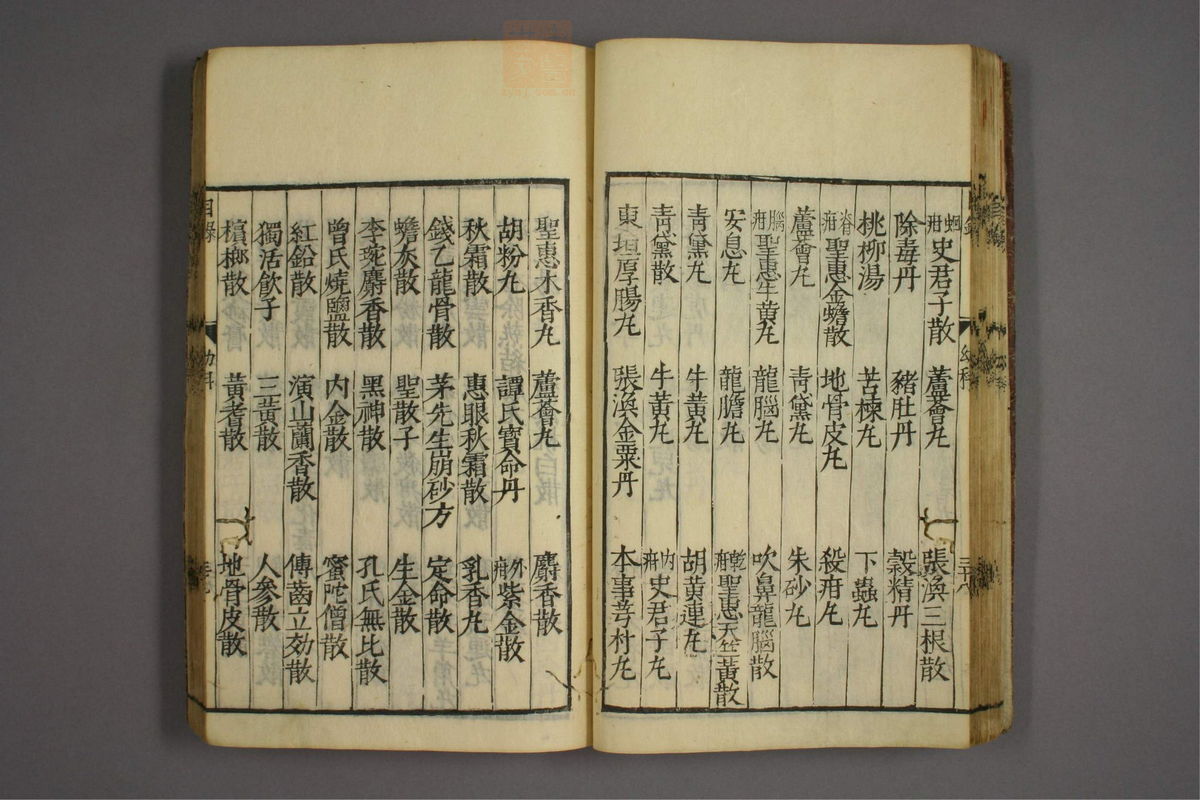 蛔疳史君子散 蘆薈丸 張渙三根散
除毒丹 豬肚丹 穀精丹
桃柳湯 苦楝丸 下蟲丸
脊疳聖惠金蟾散 地骨皮丸 殺疳丸
蘆薈丸 青黛丸 朱砂丸
腦疳聖惠牛黃丸 龍腦丸 吹鼻龍腦散
安息丸 龍膽丸 乾疳聖惠天竺黃散
青黛丸 牛黃丸 胡黃連丸
青黛散 牛黃丸 內疳史君子丸
東垣厚腸丸 張渙金粟丹 本事芎朴丸
聖惠木香丸 蘆薈丸 麝香散
胡粉丸 譚氏寶命丹 外疳紫金散
秋霜散 惠眼秋霜散 乳香丸
錢乙龍骨散 茅先生崩砂方 定命散
蟾灰散 聖散子 生金散
李琬麝香散 黑神散 孔氏無比散
曾氏燒鹽散 內金散 蜜陀僧散
紅鉛散 演山薗香散 傅齒立効散
獨活飲子 三黃散 人參散
檳榔散 黃耆散 地骨皮散
目錄 幼科